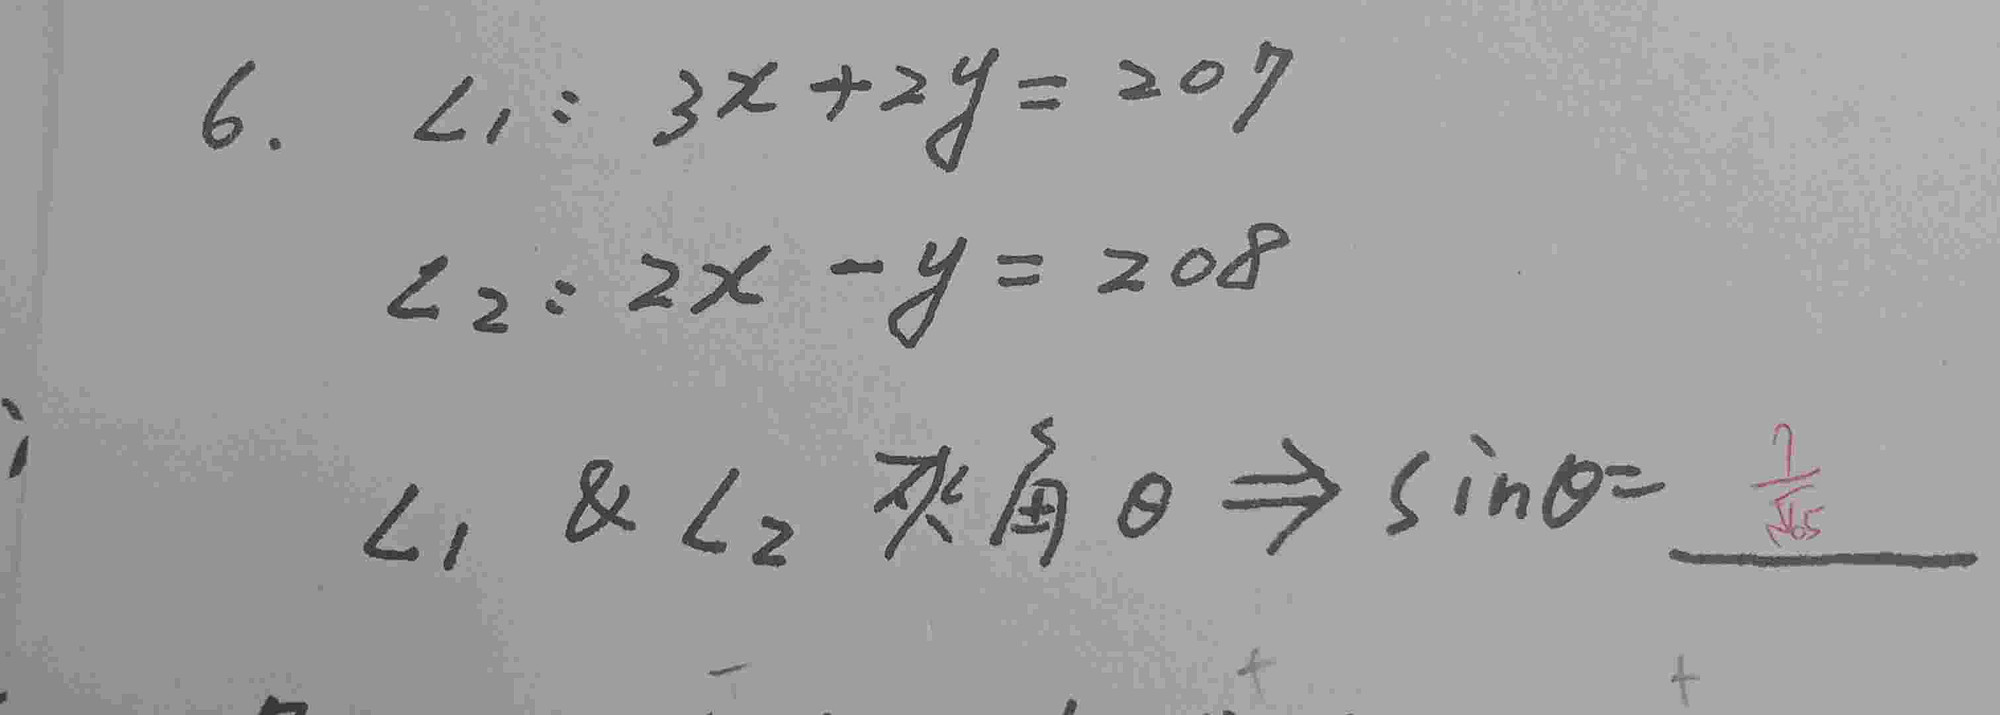 6. L₁: 3x+2y=207
L₂: 2x-y=208
L₁ & L₂ 夾角θ ⇒ sinθ= 7/√65